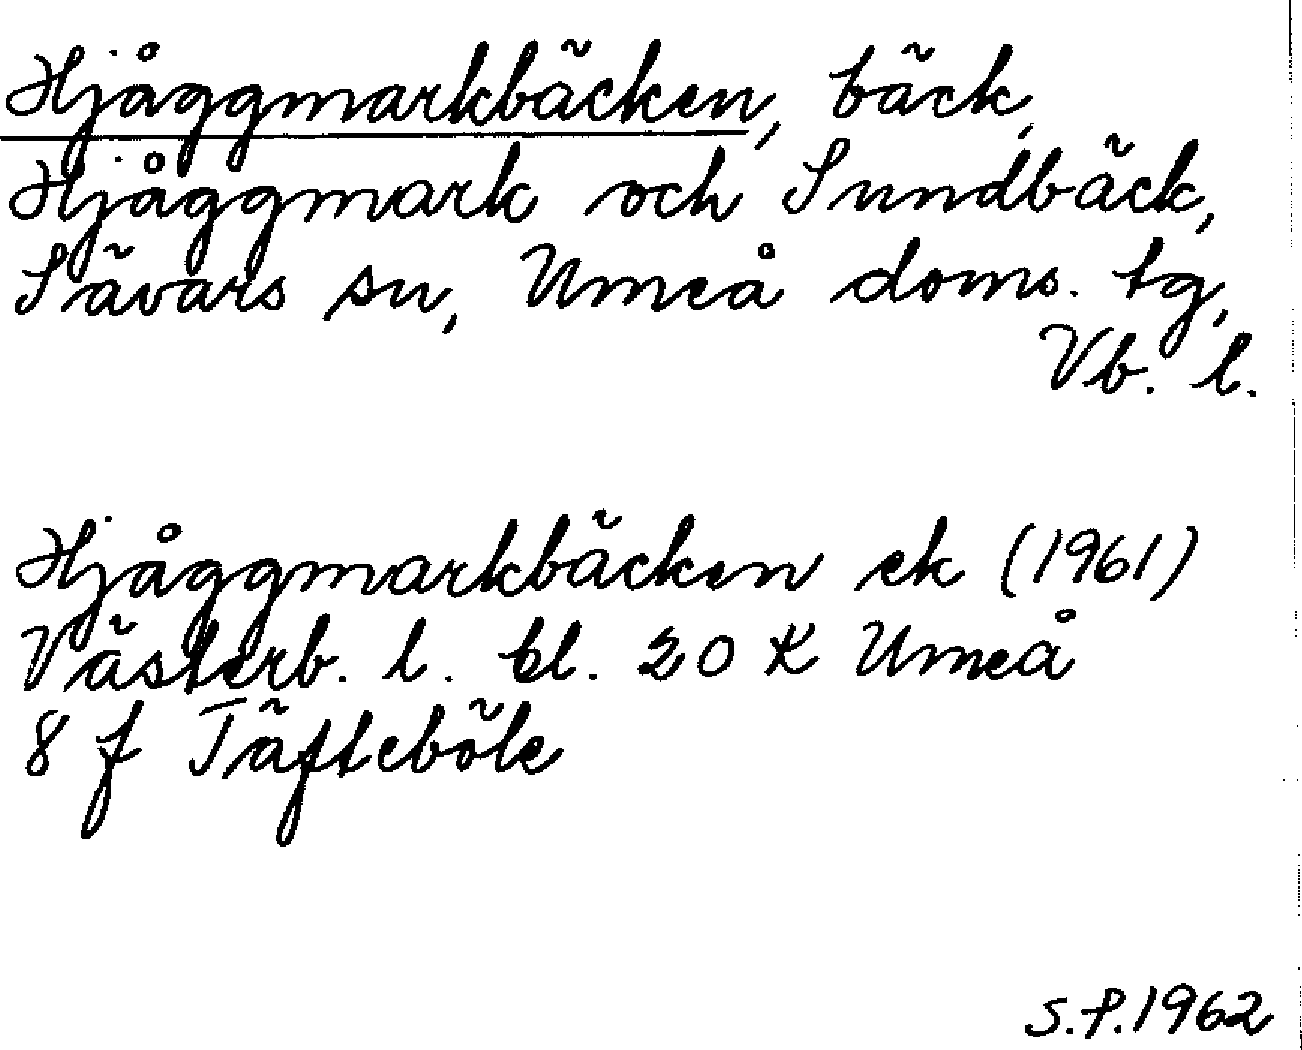 Hjåggmarkbäcken, bäck,
Hjåggmark och Sundbäck,
Sävars sn, Umeå doms. tg,
Vb. l.
Hjåggmarkbäcken ek (1961)
Västerb. l. bl. 20 K Umeå
8 f Täfteböle
S.P.1962